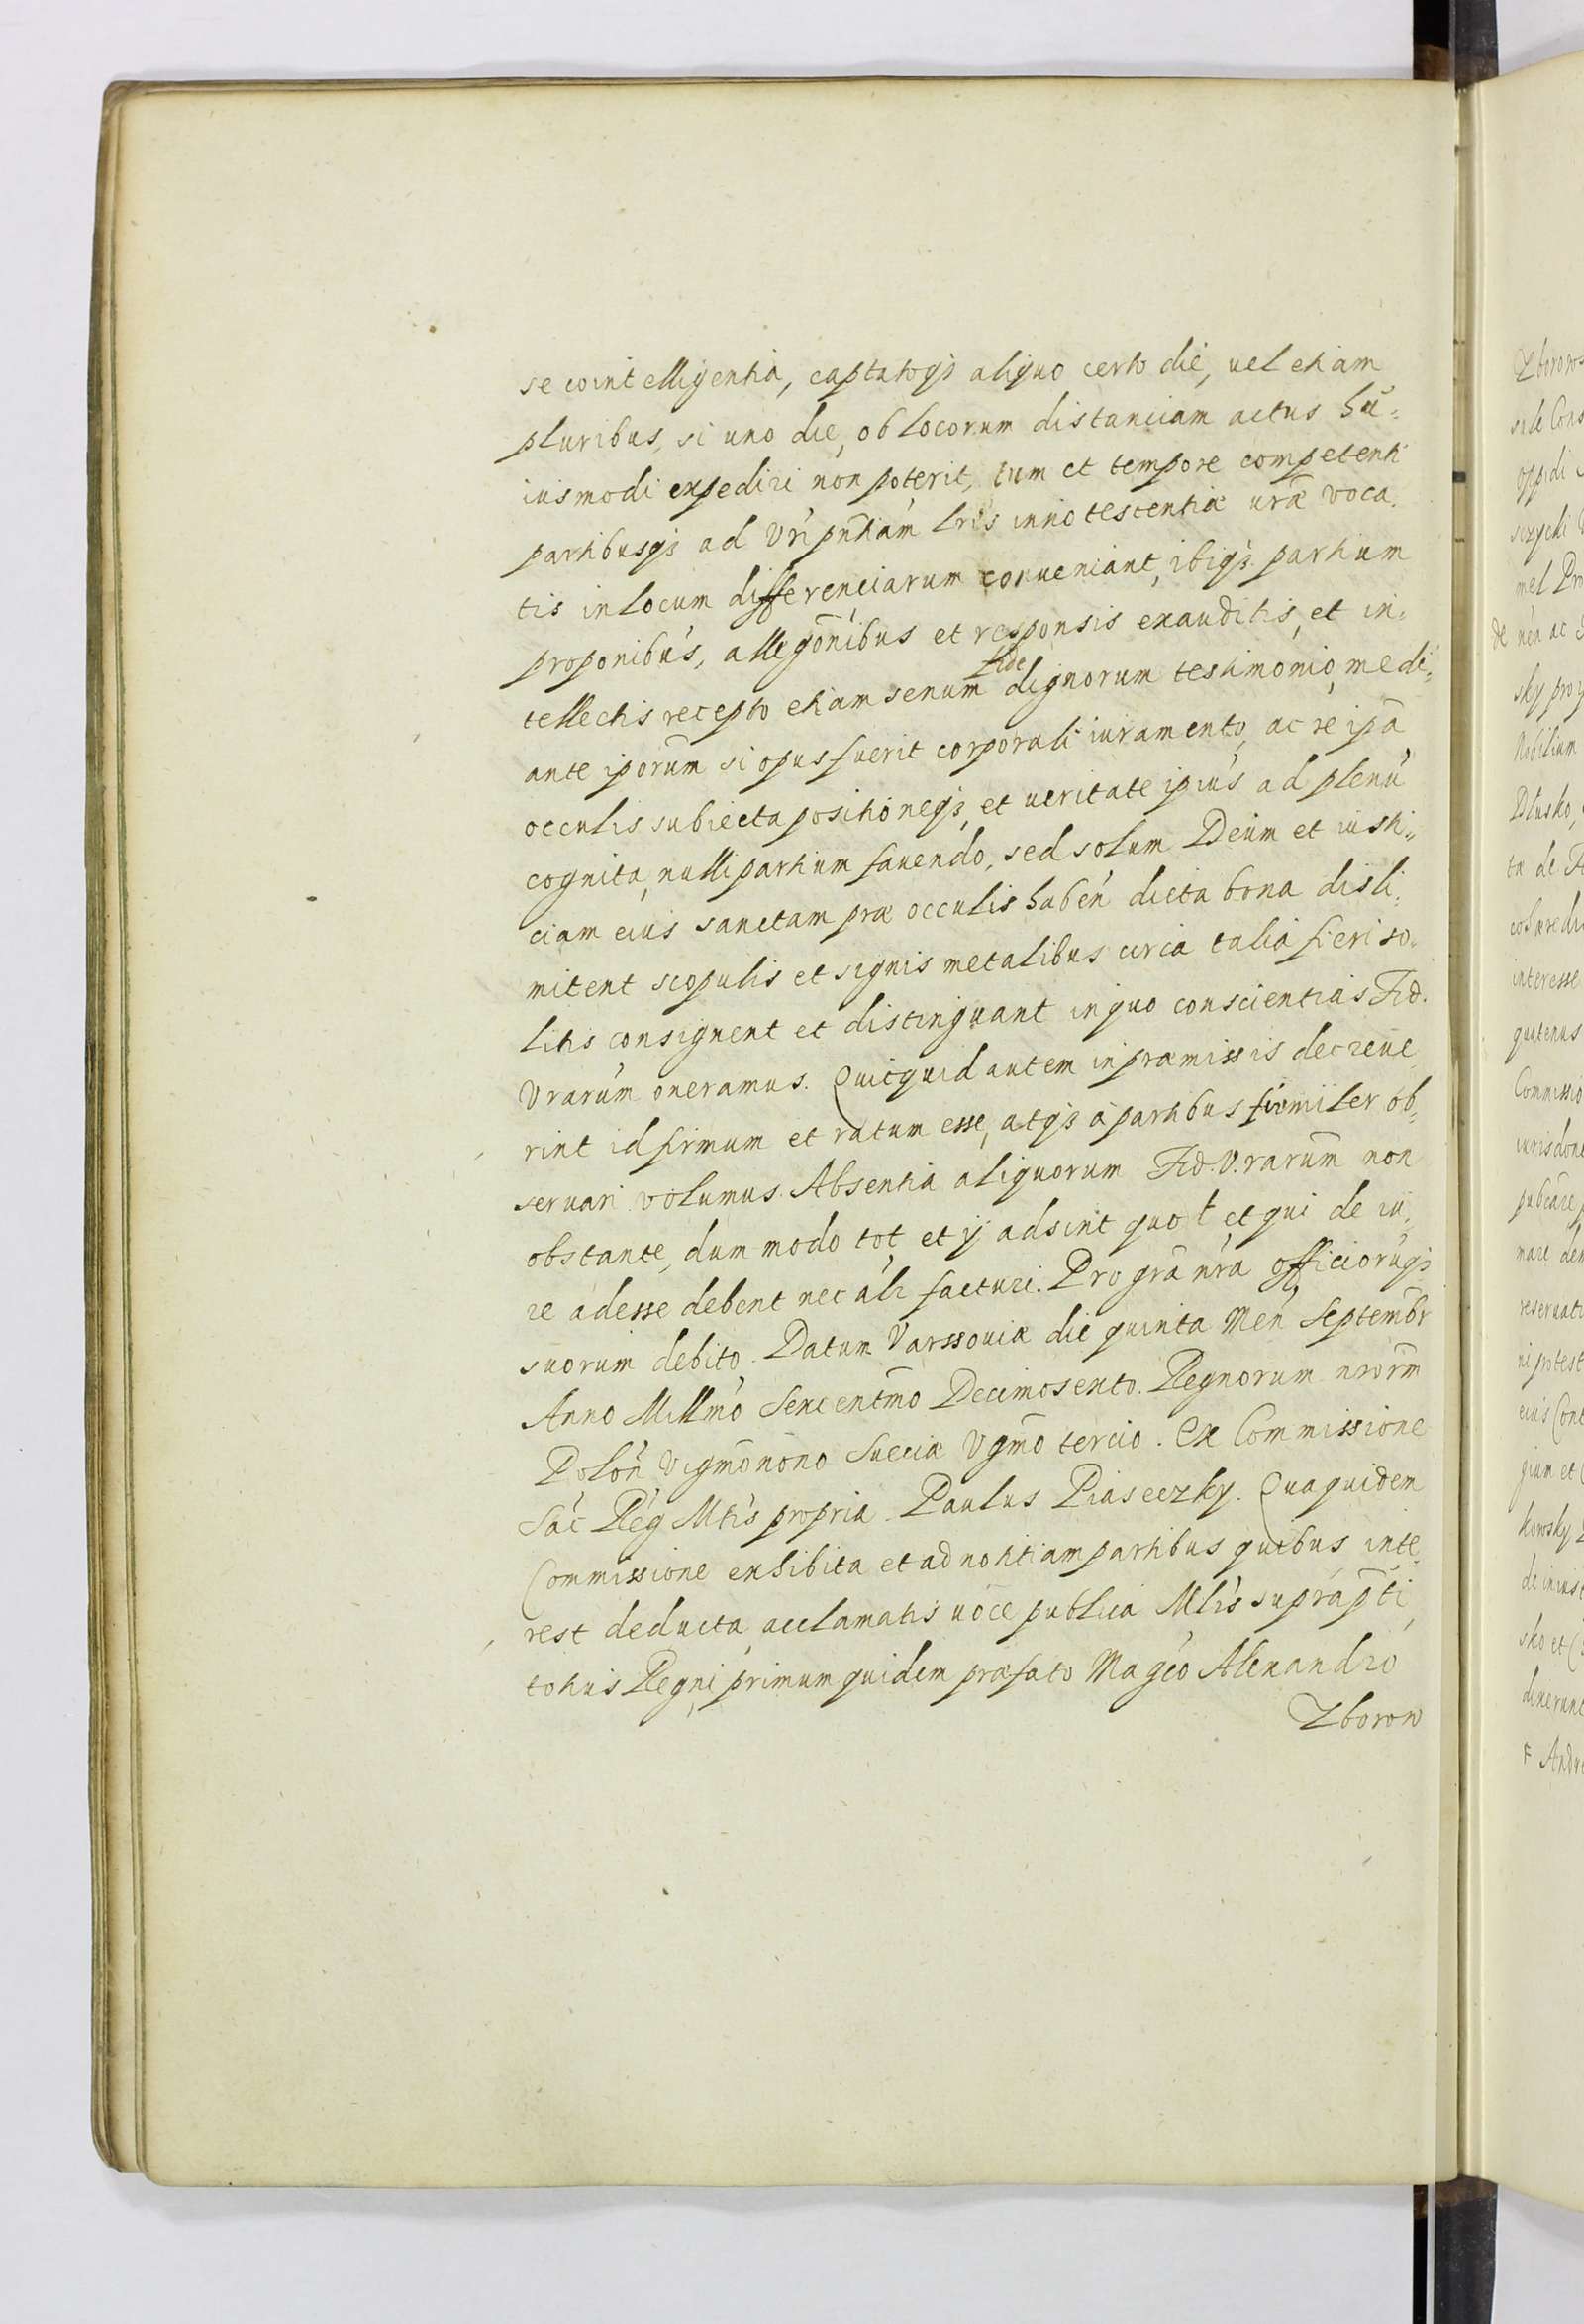 se coint elligentia, captatoqȝ aliquo certo die, uel etiam
pluribus, si uno die, ob locorum distanciam actus hu-
iusmodi expediri non poterit, tum et tempore competenti
partibusqȝ ad Vri pn̄tiam lrīs innotescentiæ uræ voca-
tis in locum differenciarum conueniant, ibiqȝ partium
proponibus, allegōnibus et responsis exauditis, et in-
tellectis recepto etiam senum fide dignorum testimonio, medi-
ante ipōrum si opus fuerit corporali iuramento, ac re ipā
occulis subiecta positioneqȝ, et ueritate ipius ad plenū
cognita, nulli partium fauendo, sed solum Deum et iusti-
ciam eius sanctam præ occulis haben̄ dicta bona disli-
mitent scopulis et signis metalibus circa talia fieri so-
litis consignent et distinguant in quo conscientias Fid.
Vrarum oneramus. Quicquid autem in præmissis decreue-
rint id firmum et ratum esse, atqȝ à partibus firmiter ob-
seruari volumus. Absentia aliquorum Fid. V.rarum̄ non
obstante, dum modo tot, et ij adsint quot, et qui de iu-
re adesse debent nec alr facturi. Pro grā nrā officiorūqȝ
suorum debito. Datum Varssouiæ die quinta Men̄ Septembr
Anno Millm̄o Sexcentm̄o Decimosexto. Regnorum nrorm̄
Polon̄ Vigm̄onōno Sueciæ Vgm̄o tercio. Ex Commissione
Sac̄ Reḡ Mtis propria. Paulus Piaseczky. Qua quidem
Commissione exhibita et ad notitiam partibus quibus inte-
rest deducta, acclamatis uoce publica Mtis supra pti
totius Regni, primum quidem præfato Magco Alexandro
Zborow